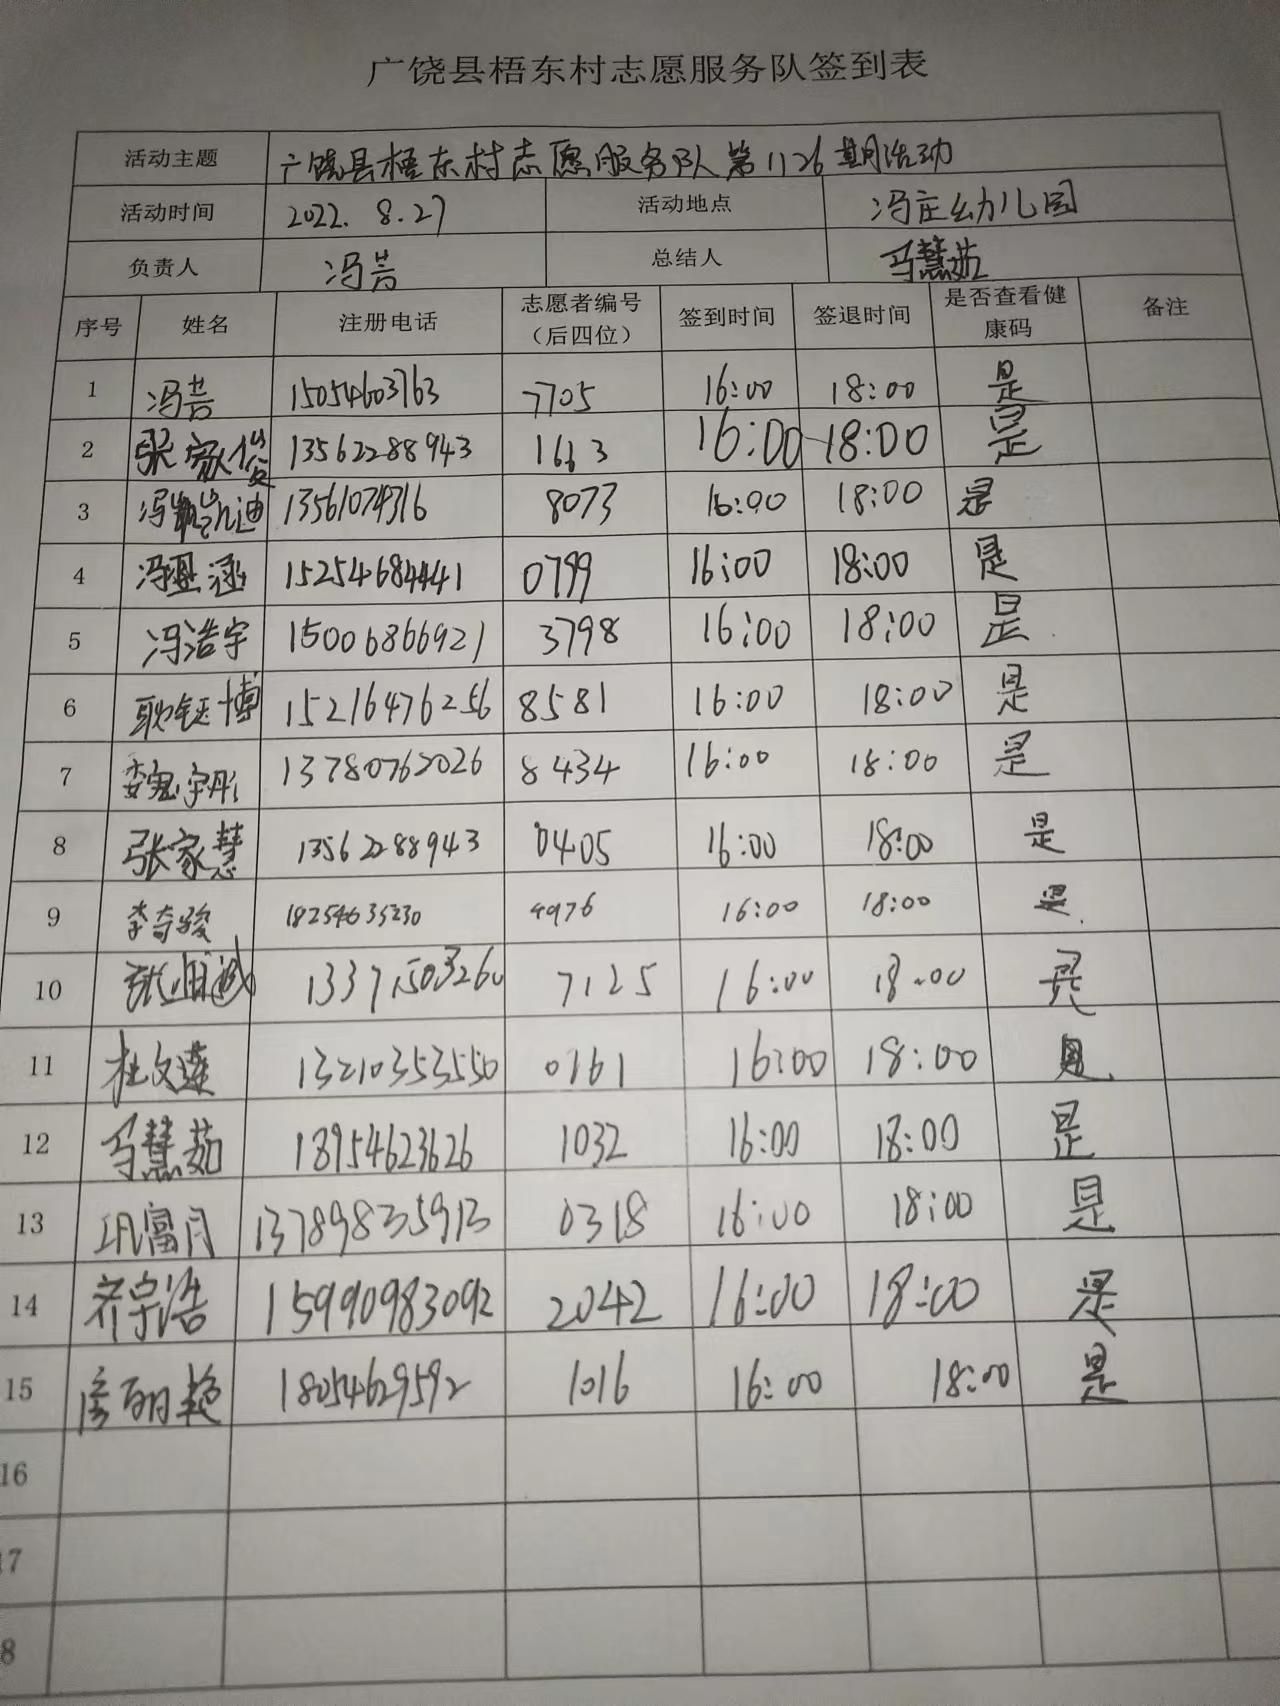 广饶县梧东村志愿服务队签到表
活动主题 广饶县梧东村志愿服务队第1126期活动
活动时间 2022.8.27 活动地点 冯庄幼儿园
负责人 冯芸 总结人 马慧茹
序号 姓名 注册电话 志愿者编号（后四位） 签到时间 签退时间 是否查看健康码 备注
1 冯芸 15054603763 7705 16:00 18:00 是
2 张家俊 13562288943 1663 16:00 18:00 是
3 冯凯迪 13561074316 8073 16:00 18:00 是
4 冯涵 15254684441 0799 16:00 18:00 是
5 冯浩宇 15006866921 3798 16:00 18:00 是
6 耿钰博 15216476256 8581 16:00 18:00 是
7 魏宇彤 13780762026 8434 16:00 18:00 是
8 张家慧 13562288943 0405 16:00 18:00 是
9 李奇骏 18254635230 4976 16:00 18:00 是
10 张 13371503260 7125 16:00 18:00 是
11 杜文莲 13210353550 0161 16:00 18:00 是
12 马慧茹 18954623626 1032 16:00 18:00 是
13 巩富月 13789835913 0318 16:00 18:00 是
14 齐宇浩 15990983092 2042 16:00 18:00 是
15 艳 18054629592 1016 16:00 18:00 是
16
17
8